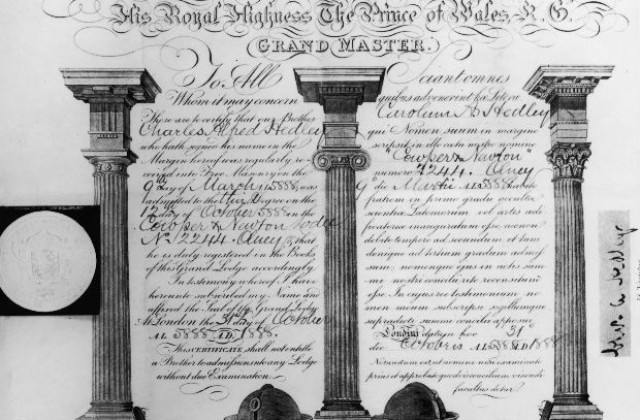 His Royal Highness The Prince of Wales, K. G.
GRAND MASTER.
To All
Whom it may concern
These are to certify that our Brother
Charles Alfred Hedley
who hath signed his name in the
Margin hereof was regularly re-
ceived into Free Masonry on the
9th day of March 5888, was
admitted to the Degree on the
12th day of October 5888 in the
Cowper & Newton Lodge
No. 2244. Olney & that
he is duly registered in the Books
of the Grand Lodge accordingly.
In testimony whereof I have
hereunto subscribed my Name and
affixed the Seal of the Grand Lodge
London the 31st day of October
AL 5888 AD 1888.
This CERTIFICATE shall not entitle
a Brother to admission into any Lodge
without due Examination.
Sciant omnes
quibus advenerint hæ Literæ
Carolum A Hedley
qui Nomen suum in margine
nomine
"Cowper & Newton"
numero 2244. Olney
die Martii AL 5888
fratrem in primo gradu
scientiæ Latomorum vel artis
inauguratum esse necnon
debito tempore ad secundum et tum
denique ad tertium gradum
suum, nomenque ejus in actis
me nostræ concilii rite recensitum
esse. In cujus rei testimonium no
men meum subscripsi sigillumque
supradicti summi concilii apposui
31o
die Octobris AL 5888 AD 1888